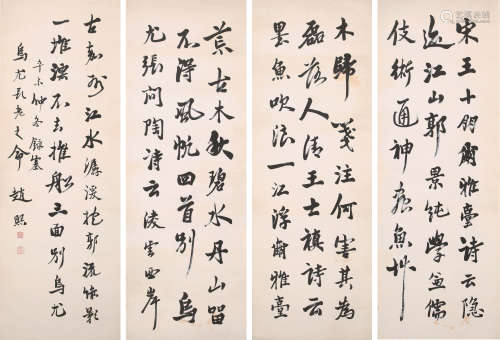 宋王十朋爾雅臺詩云隱
迹江山郭景純學兼儒
伎術通神蟲魚艸
木歸箋注何害其為
磊落人清王士禛詩云
墨魚吹浪一江浮爾雅臺
荒古木秋碧水丹山留
不得風帆回首別烏
尤張問陶詩云凌雲西岸
古嘉州江水潺湲抱郭流綠影
一堆漂不去推船三面別烏尤
辛未仲冬錄塞
烏尤長老之命 趙熙